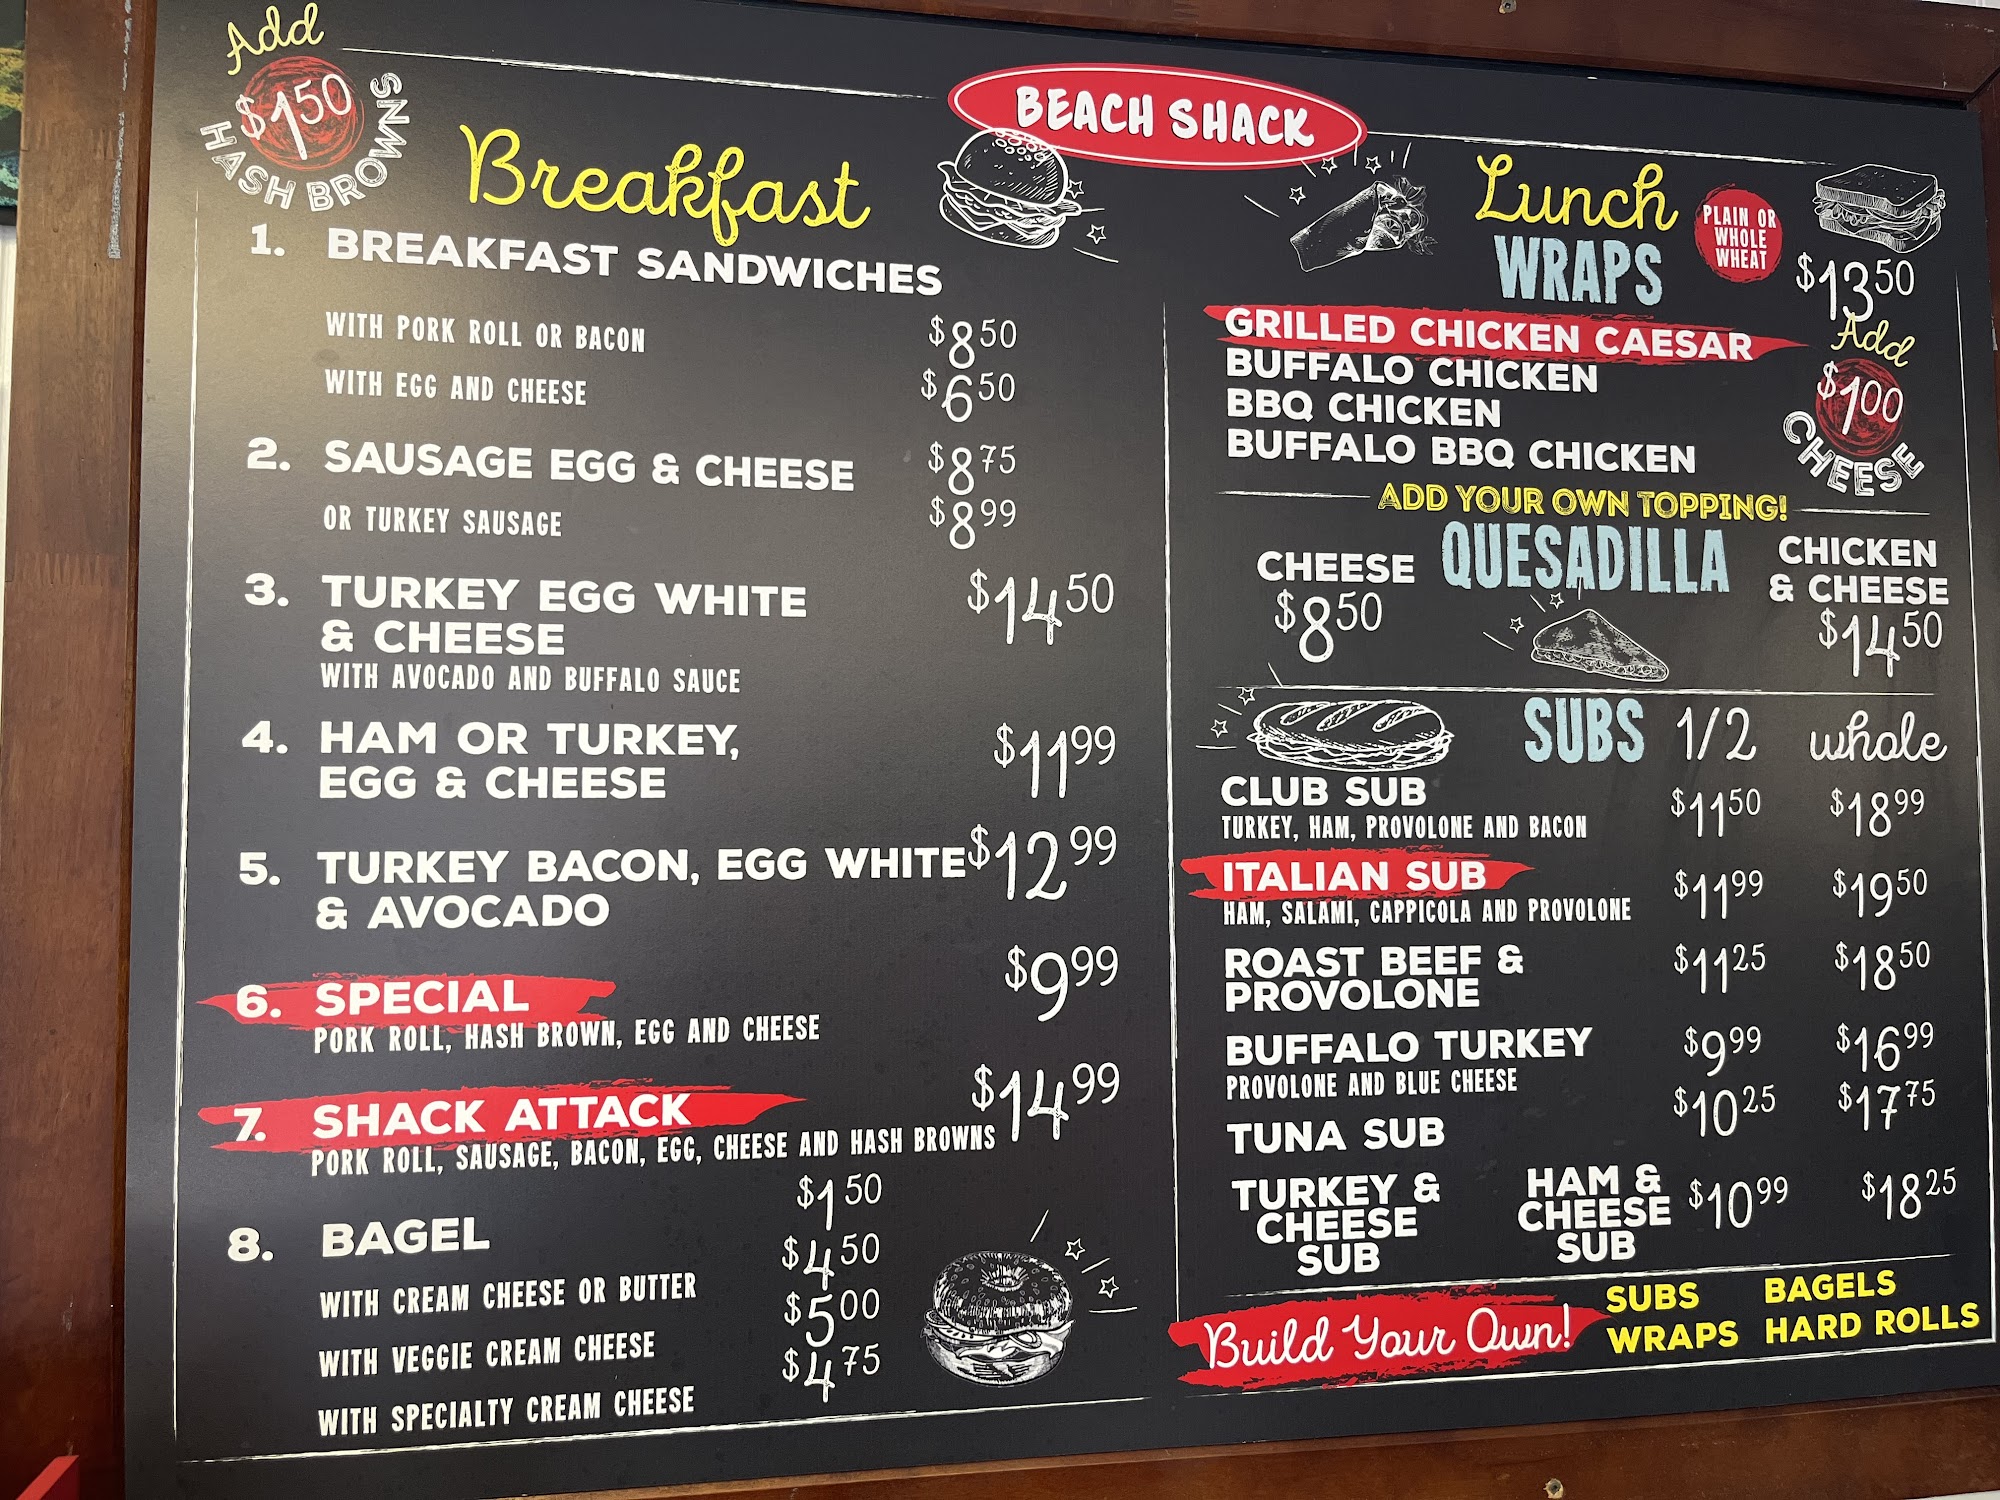 Add
$1.50
HASH BROWNS
BEACH SHACK
Breakfast
1. BREAKFAST SANDWICHES
WITH PORK ROLL OR BACON $8.50
WITH EGG AND CHEESE $6.50
2. SAUSAGE EGG & CHEESE $8.75
OR TURKEY SAUSAGE $8.99
3. TURKEY EGG WHITE $14.50
& CHEESE
WITH AVOCADO AND BUFFALO SAUCE
4. HAM OR TURKEY, $11.99
EGG & CHEESE
5. TURKEY BACON, EGG WHITE $12.99
& AVOCADO
6. SPECIAL $9.99
PORK ROLL, HASH BROWN, EGG AND CHEESE
7. SHACK ATTACK $14.99
PORK ROLL, SAUSAGE, BACON, EGG, CHEESE AND HASH BROWNS
8. BAGEL $1.50
WITH CREAM CHEESE OR BUTTER $4.50
WITH VEGGIE CREAM CHEESE $5.00
WITH SPECIALTY CREAM CHEESE $4.75
Lunch
WRAPS
PLAIN OR
WHOLE
WHEAT
$13.50
GRILLED CHICKEN CAESAR
BUFFALO CHICKEN
BBQ CHICKEN
BUFFALO BBQ CHICKEN
Add
$1.00
CHEESE
ADD YOUR OWN TOPPING!
QUESADILLA
CHEESE
$8.50
CHICKEN
& CHEESE
$14.50
SUBS 1/2 whole
CLUB SUB $11.50 $18.99
TURKEY, HAM, PROVOLONE AND BACON
ITALIAN SUB $11.99 $19.50
HAM, SALAMI, CAPPICOLA AND PROVOLONE
ROAST BEEF & $11.25 $18.50
PROVOLONE
BUFFALO TURKEY $9.99 $16.99
PROVOLONE AND BLUE CHEESE
TUNA SUB $10.25 $17.75
TURKEY &
CHEESE
SUB
HAM &
CHEESE
SUB
$10.99 $18.25
Build Your Own!
SUBS BAGELS
WRAPS HARD ROLLS